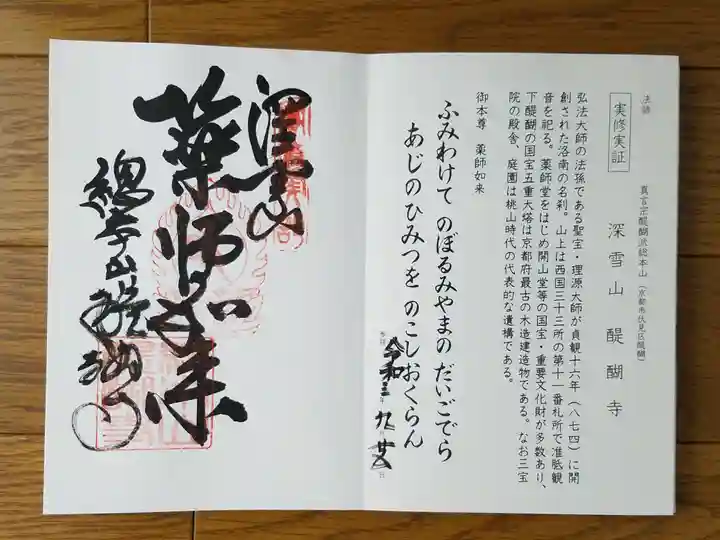 法脉
実修実証
真言宗醍醐派総本山（京都市伏見区醍醐）
深雪山　醍醐寺
弘法大師の法孫である聖宝・理源大師が貞観十六年（八七四）に開
創された洛南の名刹。山上は西国三十三所の第十一番札所で准胝観
音を祀る。薬師堂をはじめ開山堂等の国宝・重要文化財が多数あり、
下醍醐の国宝五重大塔は京都府最古の木造建造物である。なお三宝
院の殿舎、庭園は桃山時代の代表的な遺構である。
御本尊　薬師如来
ふみわけて のぼるみやまの だいごでら
あじのひみつを のこしおくらん
令和三年九月廿五日
深雪山
薬師如来
総本山醍醐寺